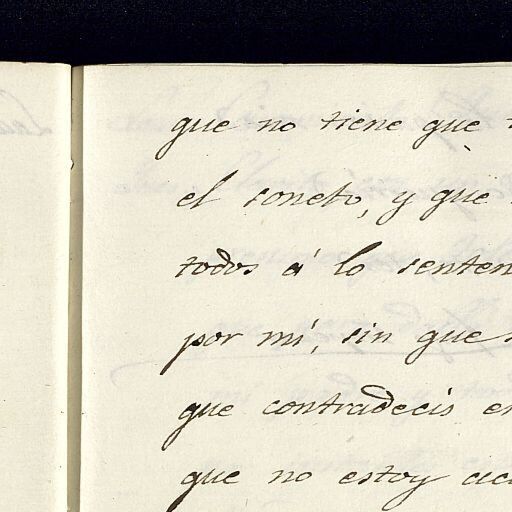 que no tiene que
el soneto, y que
todos á lo senten
por mí, sin que
que contradecis en
que no estoy